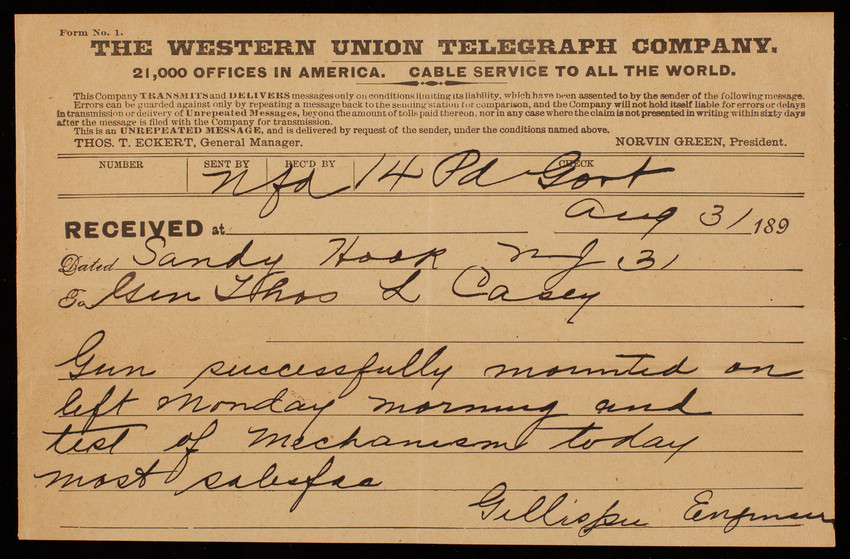 Form No. 1.
THE WESTERN UNION TELEGRAPH COMPANY.
21,000 OFFICES IN AMERICA. CABLE SERVICE TO ALL THE WORLD.
This Company TRANSMITS and DELIVERS messages only on conditions limiting its liability, which have been assented to by the sender of the following message.
Errors can be guarded against only by repeating a message back to the sending station for comparison, and the Company will not hold itself liable for errors or delays
in transmission or delivery of Unrepeated Messages, beyond the amount of tolls paid thereon, nor in any case where the claim is not presented in writing within sixty days
after the message is filed with the Company for transmission.
This is an UNREPEATED MESSAGE, and is delivered by request of the sender, under the conditions named above.
THOS. T. ECKERT, General Manager. NORVIN GREEN, President.
NUMBER SENT BY REC'D BY CHECK
14 Pd Govt
RECEIVED at Aug 31 189
Dated Sandy Hook NJ 31
To Gen Thos L Casey
Gun successfully mounted on
left Monday morning and
test of Mechanism today
most
Gillispie Engineer